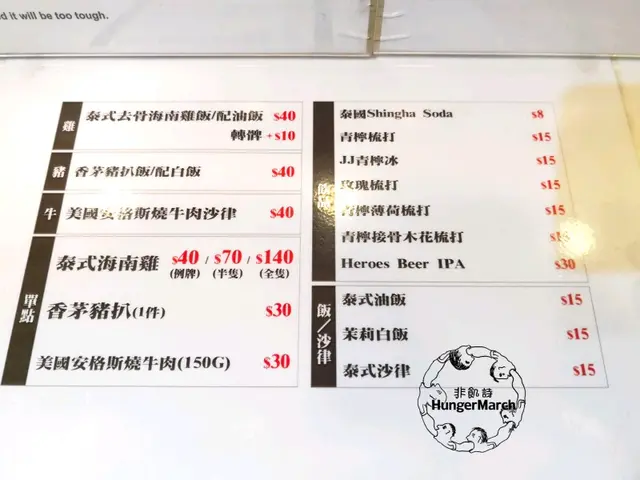 d it will be too tough.
雞
泰式去骨海南雞飯/配油飯 $40
轉髀 +$10
豬
香茅豬扒飯/配白飯 $40
牛
美國安格斯燒牛肉沙律 $40
單點
泰式海南雞 $40 / $70 / $140
(例牌) (半隻) (全隻)
香茅豬扒(1件) $30
美國安格斯燒牛肉(150G) $30
泰國Shingha Soda $8
青檸梳打 $15
JJ青檸冰 $15
玫瑰梳打 $15
青檸薄荷梳打 $15
青檸接骨木花梳打
Heroes Beer IPA $30
飯/沙律
泰式油飯 $15
茉莉白飯 $15
泰式沙律 $15
非飢詩
HungerMarch